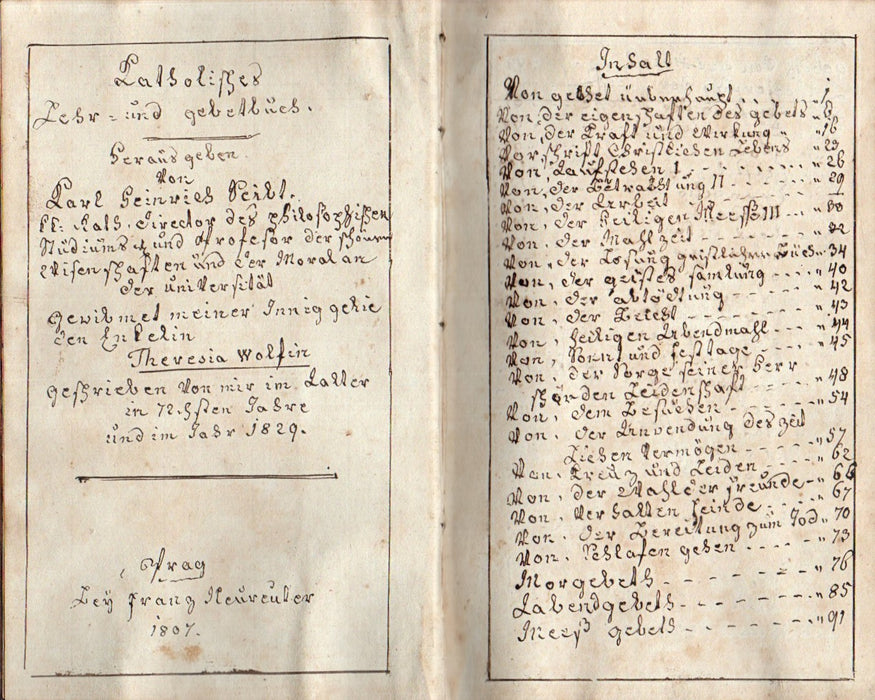 Katholisches
Lehr- und gebetbuch.
Heraus geben
Von
Karl Heinrich Seibt.
kk: Rath, Director des philosophischen
Studiums, und Profesor der schönen
Wisenschaften und der Moral an
der universität
gewidmet meiner Innig gelie
den Enkelin
Theresia Wolfin
geschrieben Von mir im Aalter
in 72.hsten Jahre
und im Jahr 1829.
Prag
Bey Franz Neureuter
1807.
Inhalt
Von gebet überhaupt 1
Von der eigenschaften des gebets
Von der Kraft und Wirkung " 16
Vorschrift Christlichen Lebens " 23
Von Aaufstehen I " 26
Von der Betrachtung II " 29
Von der Arbeit
Von der Heiligen Meesse III " 30
Von der Mahlzeit " 32
Von der Lesung geistlicher Büch " 34
Von der geistes samlung " 40
Von der abtödtung " 42
Von der Beicht " 43
Von heiligen Abendmahl " 44
Von Sonn und festtage " 45
Von der Sorge seiner Herr
schenden Leidenschaft " 48
Von dem Besuchen " 54
Von der Anvendung des zeit
Lichen Vermögen " 57
Von Kreuz und Leiden " 62
Von der Wahl der freunde " 66
Von Verhalten feinde " 67
Von der Bereitung zum Tod " 70
Von Schlafen gehen " 73
Morgebeth " 76
Aabendgebeth " 85
Meeß gebeth " 91